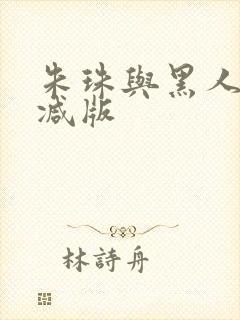 朱珠與黑人
减版
林詩舟